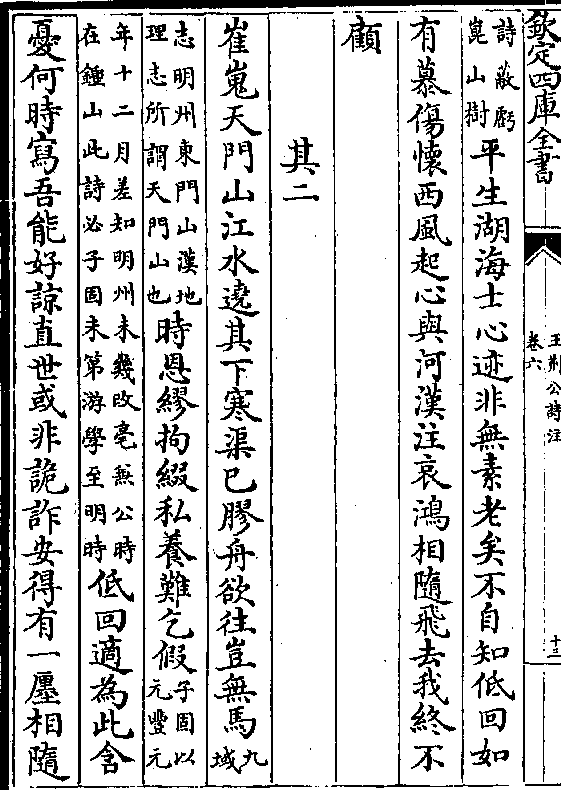 欽定四庫全書
王荆公詩注
卷六
詩蔽虧
崑山樹
平生湖海士心迹非無素老矣不自知低回如
有慕傷懷西風起心與河漢注哀鴻相隨飛去我終不
顧
其二
崔嵬天門山江水遶其下寒渠已膠舟欲往豈無馬
九
域
志明州東門山漢地
理志所謂天門山也
時恩繆拘綴私養難乞假
子固以
元豐元
年十二月差知明州未幾改亳無公時
在鍾山此詩必子固未第游學至明時
低回適為此含
憂何時寫吾能好諒直世或非詭詐安得有一廛相隨